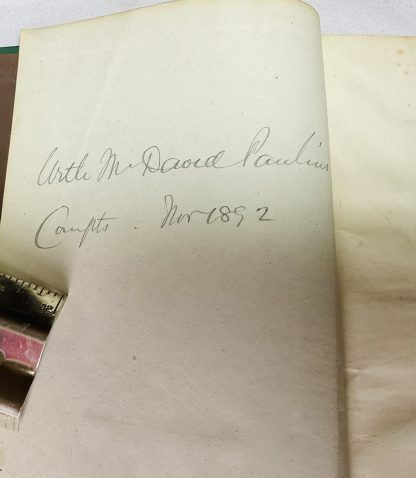 With Mr David Paulin's
Compts. Nov 1892